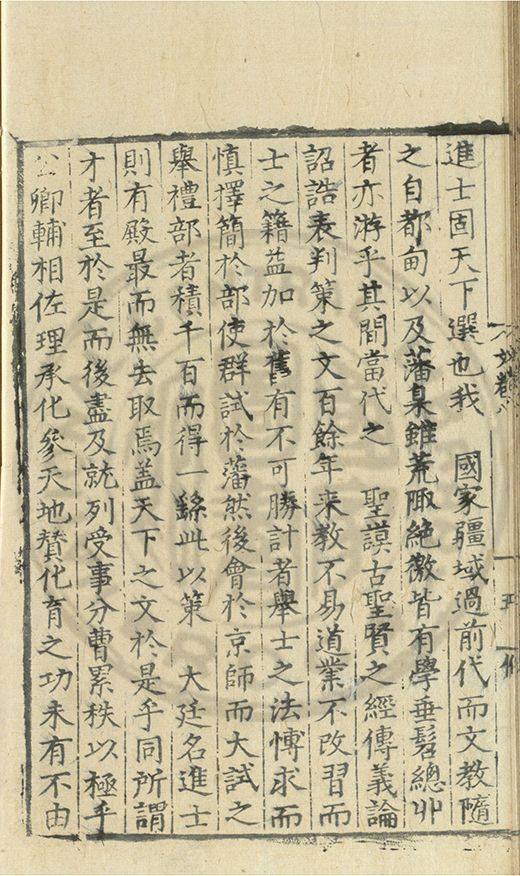 進士固天下選也我　國家疆域過前代而文教隨
之自都甸以及藩臬雖荒陬絶徼皆有學垂髫總丱
者亦游乎其間當代之　聖謨古聖賢之經傳義論
詔誥表判策之文百餘年来教不易道業不改習而
士之籍益加於舊有不可勝計者舉士之法慱求而
慎擇簡於部使群試於藩然後會於京師而大試之
舉禮部者積千百而得一繇此以策　大廷名進士
則有殿最而無去取焉盖天下之文於是乎同所謂
才者至於是而後盡及就列受事分曹累秩以極乎
公卿輔相佐理承化參天地賛化育之功未有不由